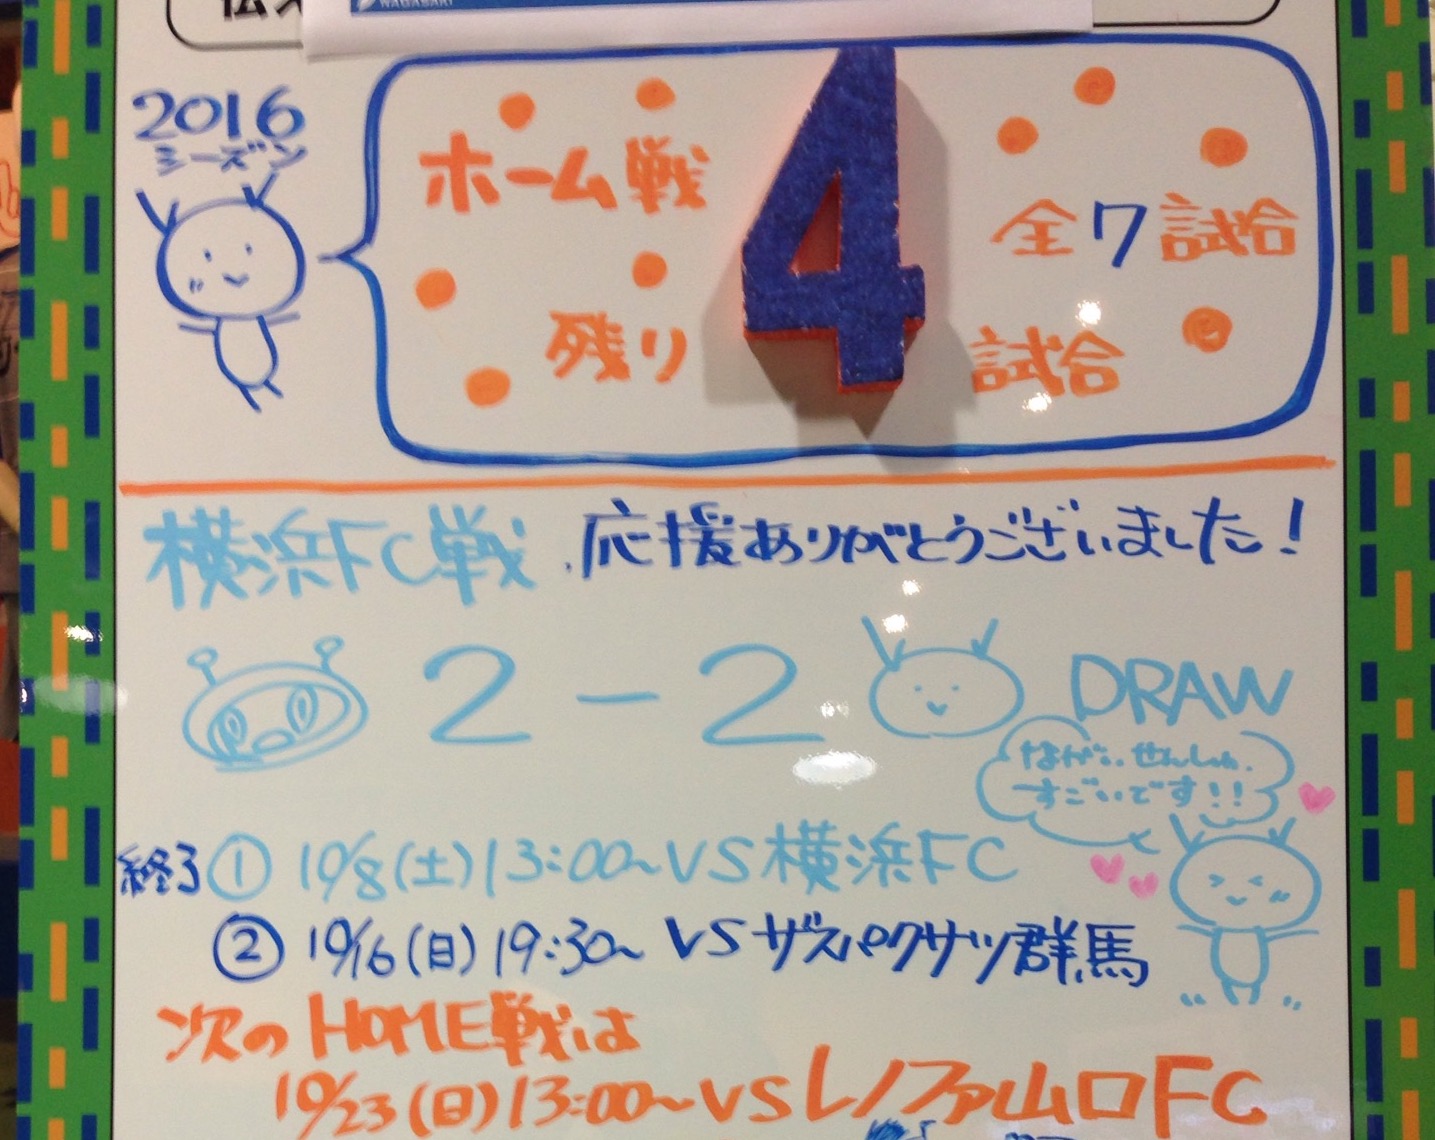 NAGASAKI
2016
シーズン
ホーム戦
全7試合
残り 4 試合
横浜FC戦、応援ありがとうございました!
2-2 DRAW
ながいせんしゅ、
すごいです!!
終了① 10/8(土)13:00~VS横浜FC
② 10/16(日)19:30~ VSザスパクサツ群馬
次のHOME戦は
10/23(日)13:00~VSレノファ山口FC